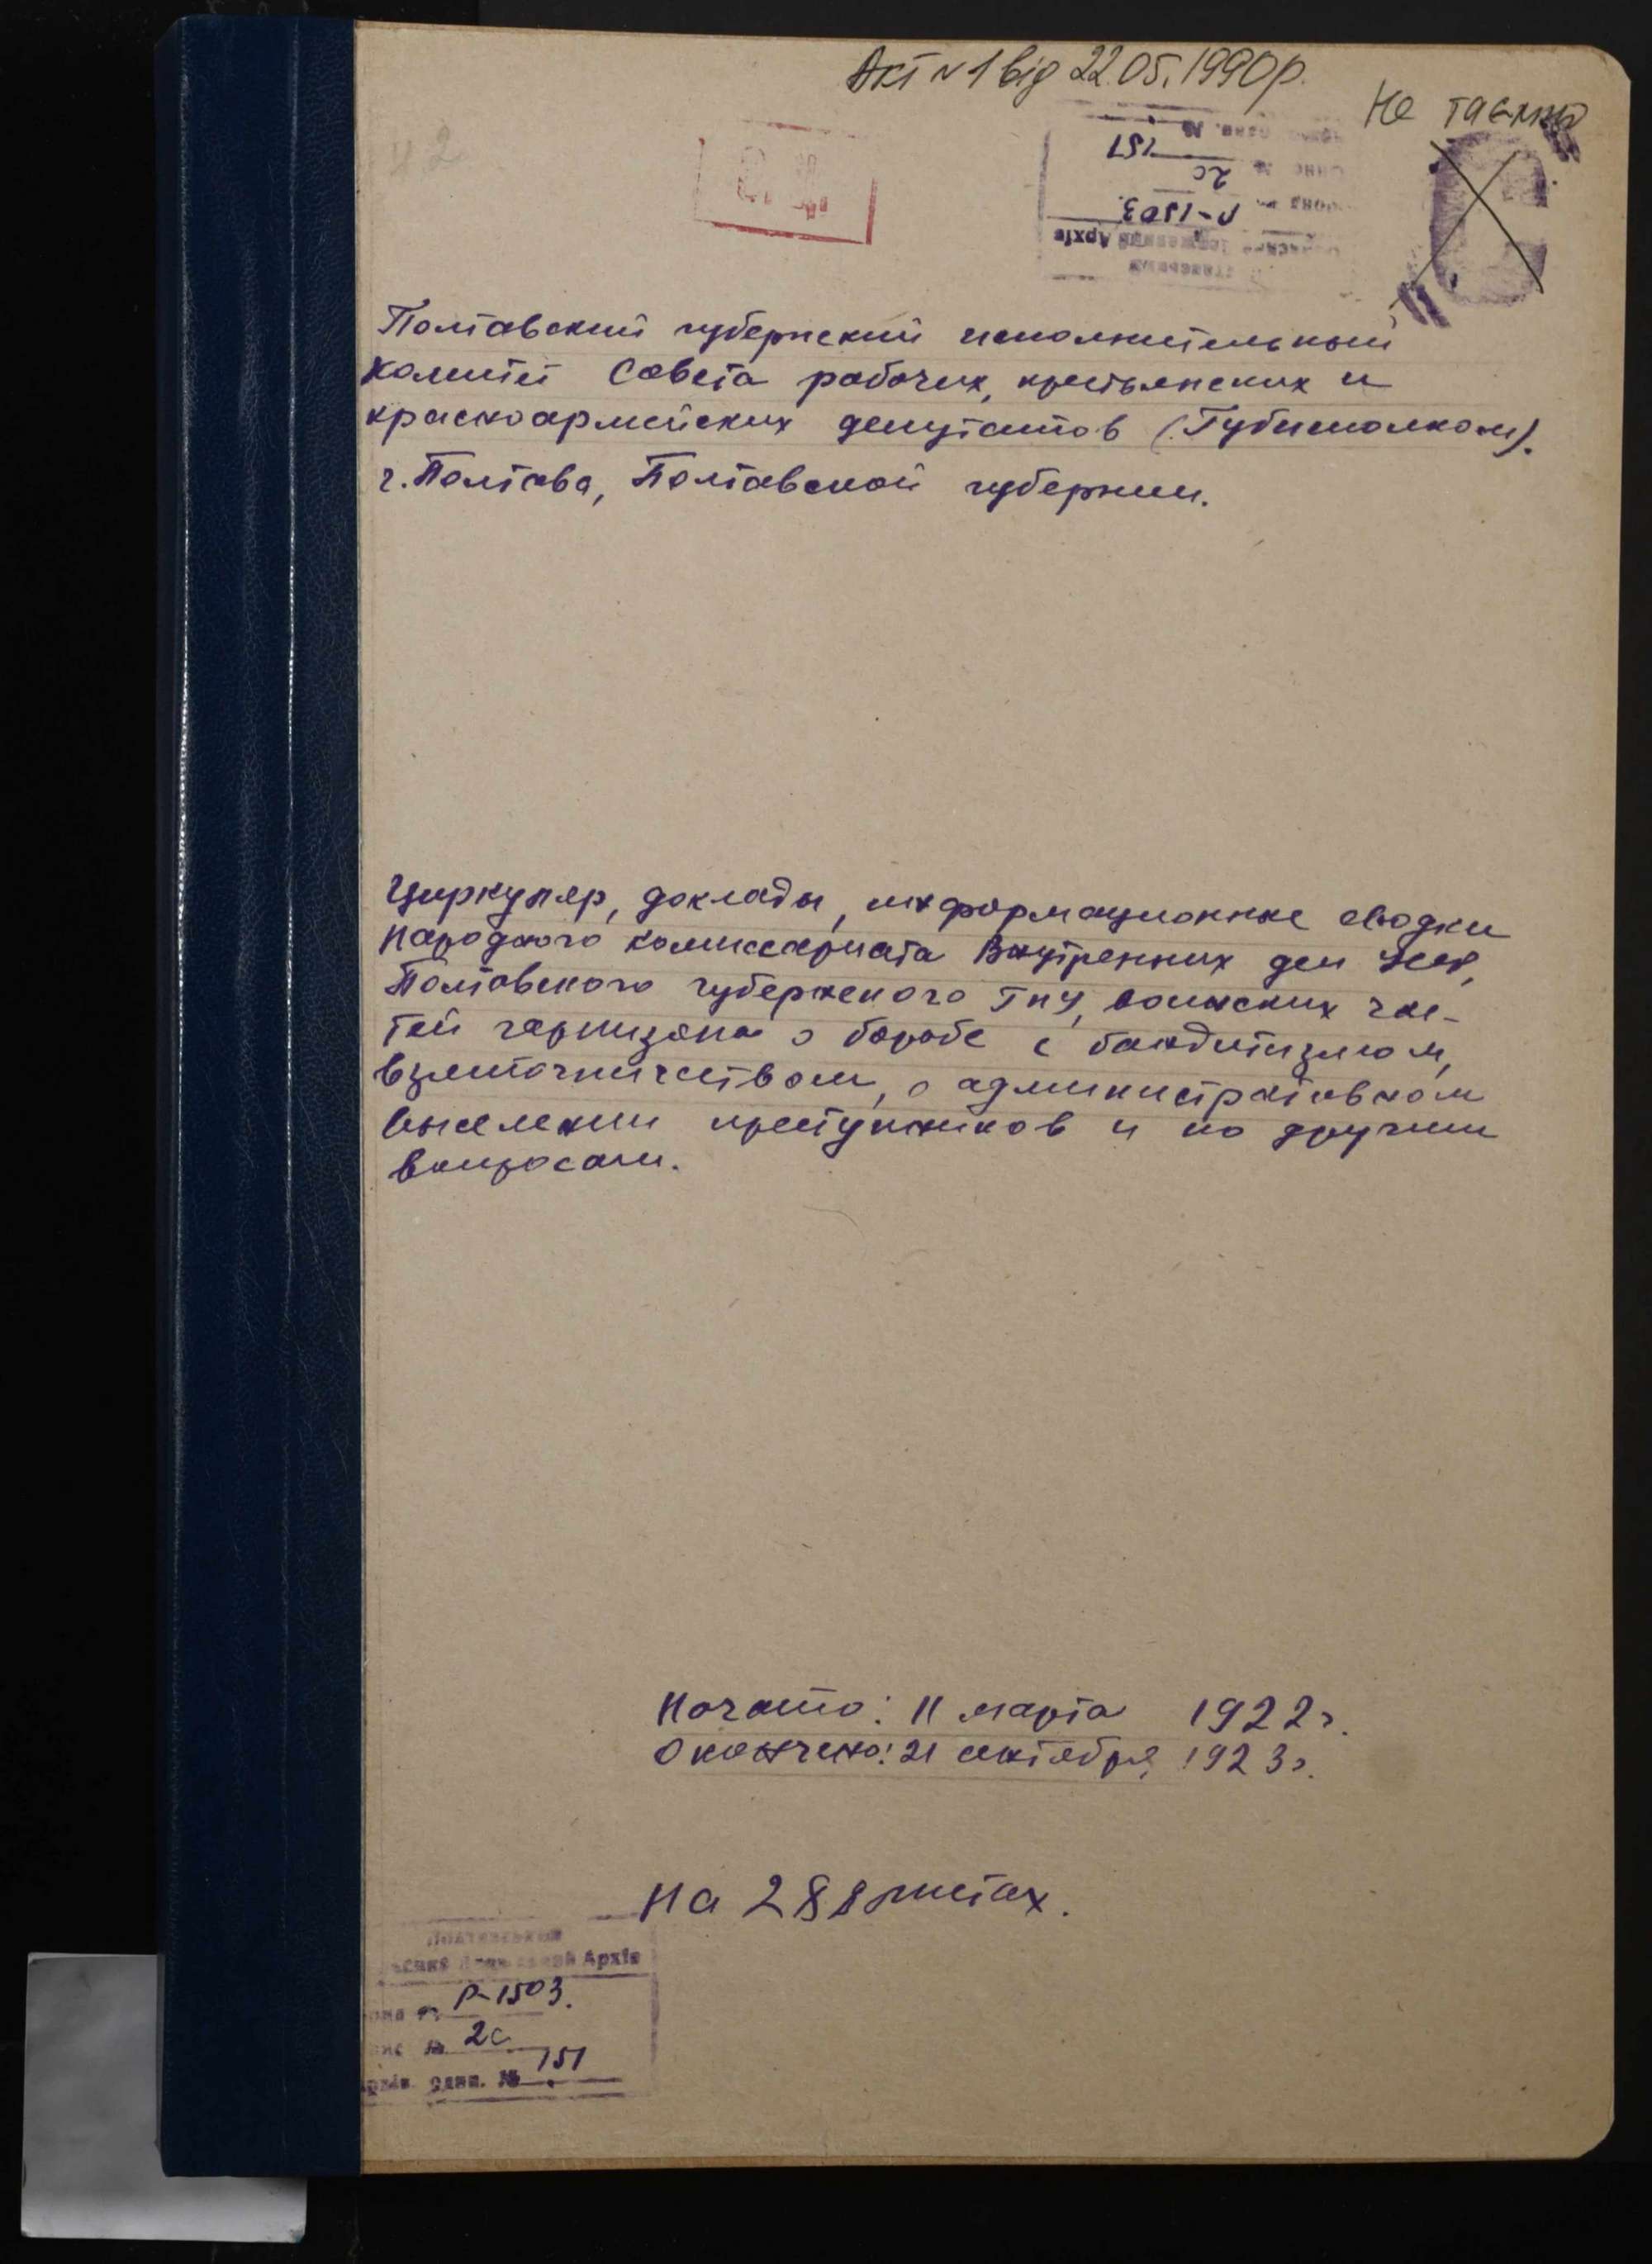 Акт № 1 від 22.05.1990р.
Не таємно
42
151
2с
Р-1503.
Архів
Полтавский губернский исполнительный
комитет Совета рабочих, крестьянских и
красноармейских депутатов (Губисполком).
г. Полтава, Полтавской губернии.
Циркуляр, доклады, информационные сводки
Народного комиссариата Внутренних дел УССР,
Полтавского губернского ГПУ, воинских час-
тей гарнизона о борьбе с бандитизмом,
взяточничеством, о административном
выселении преступников и по другим
вопросам.
Начато: 11 марта 1922г.
Окончено: 21 октября 1923г.
На 288 листах.
Архів
Р-1503.
№ 2с
один. № 151